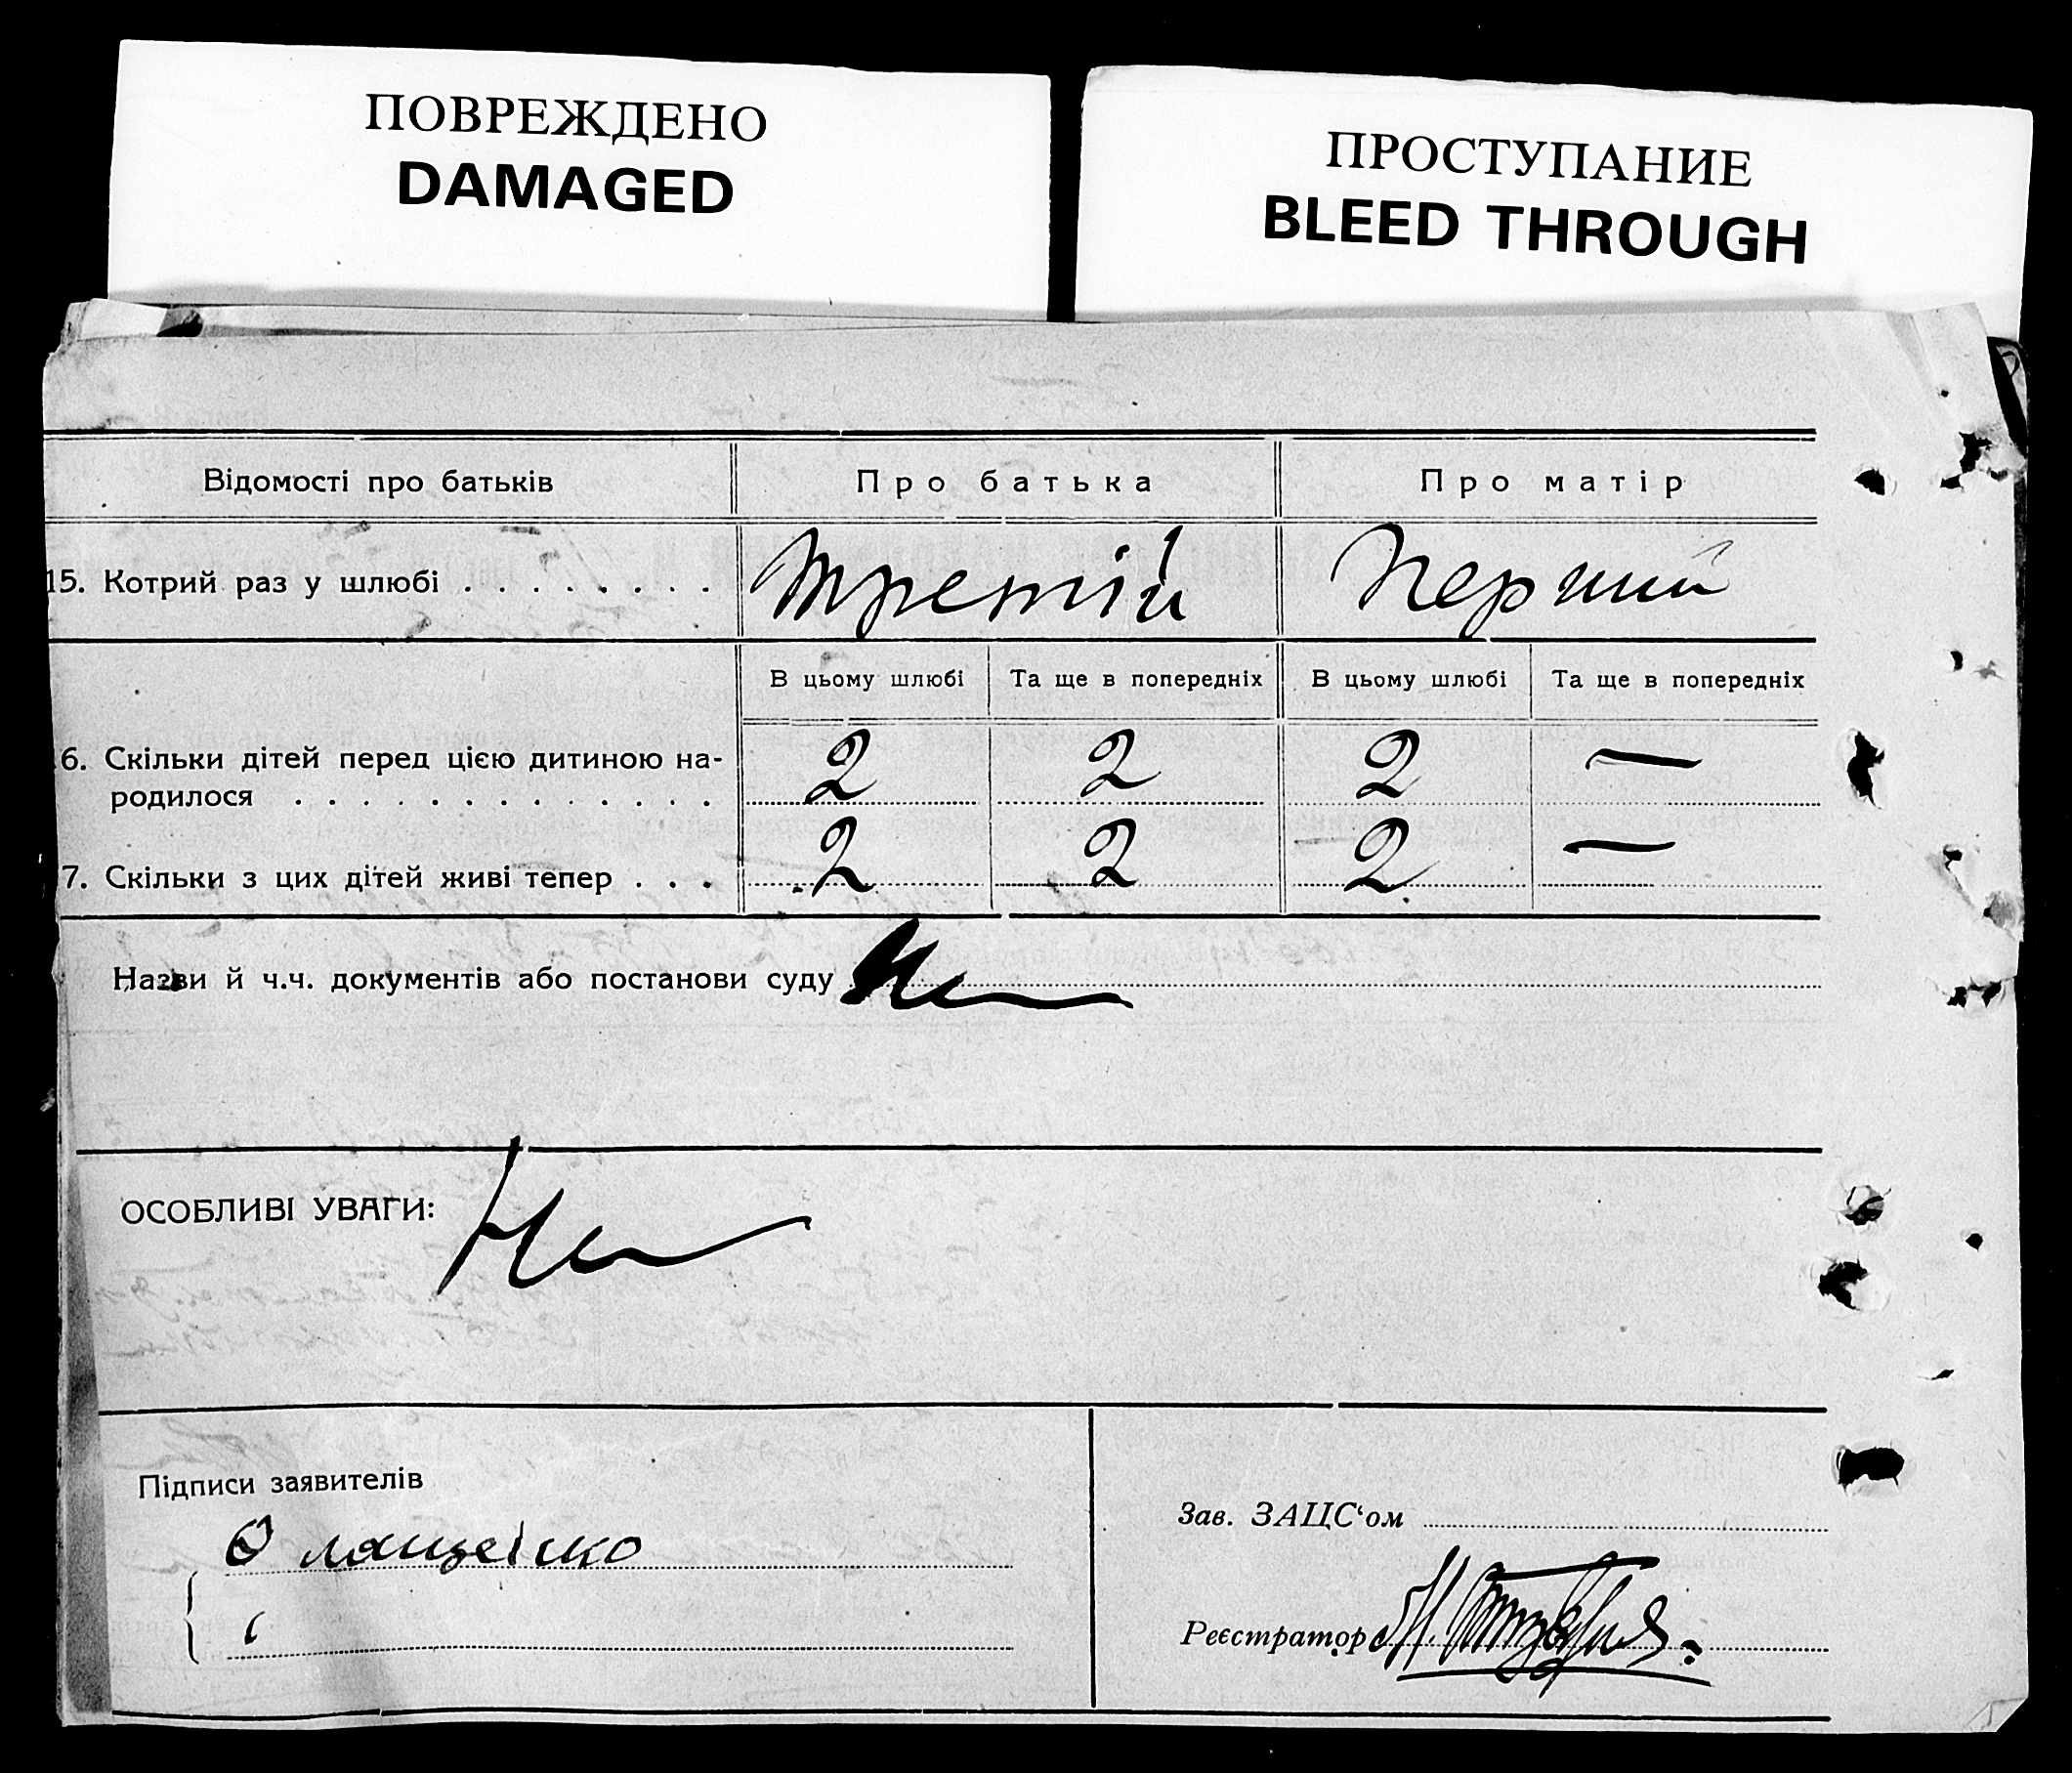 ПОВРЕЖДЕНО
DAMAGED
ПРОСТУПАНИЕ
BLEED THROUGH
Відомості про батьків Про батька Про матір
15. Котрий раз у шлюбі . . . . . . . . третій Перший
В цьому шлюбі Та ще в попередніх В цьому шлюбі Та ще в попередніх
6. Скільки дітей перед цією дитиною на-
родилося . . . . . . . . . . . . . 2 2 2 —
7. Скільки з цих дітей живі тепер . . . 2 2 2 —
Назви й ч.ч. документів або постанови суду
ОСОБЛИВІ УВАГИ:
Підписи заявителів
Зав. ЗАЦС‘ом
Реєстратор